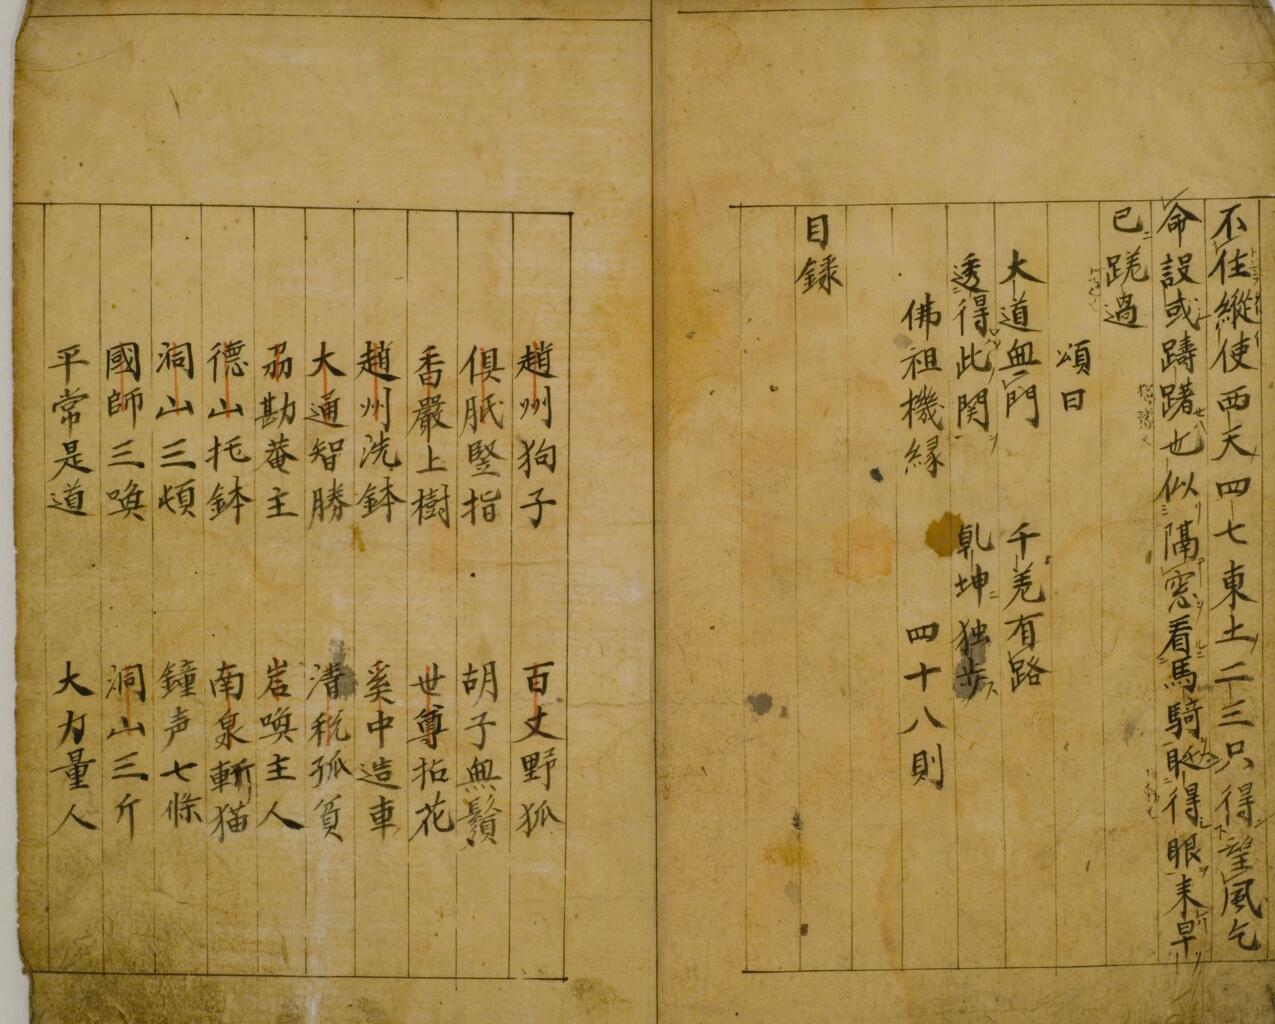 不住縱使西天四七東土二三只得望風乞
命設或躊躇也似隔窓看馬騎眨得眼来早
已蹉過
頌曰
大道無門 千差有路
透得此関 乹坤独步
佛祖機縁 四十八則
目録
趙州狗子 百丈野狐
俱胝竪指 胡子無鬚
香嚴上樹 世尊拈花
趙州洗鉢 奚中造車
大通智勝 清稅孤貧
州勘菴主 岩喚主人
德山托鉢 南泉斬猫
洞山三頓 鐘声七條
國師三喚 洞山三斤
平常是道 大力量人